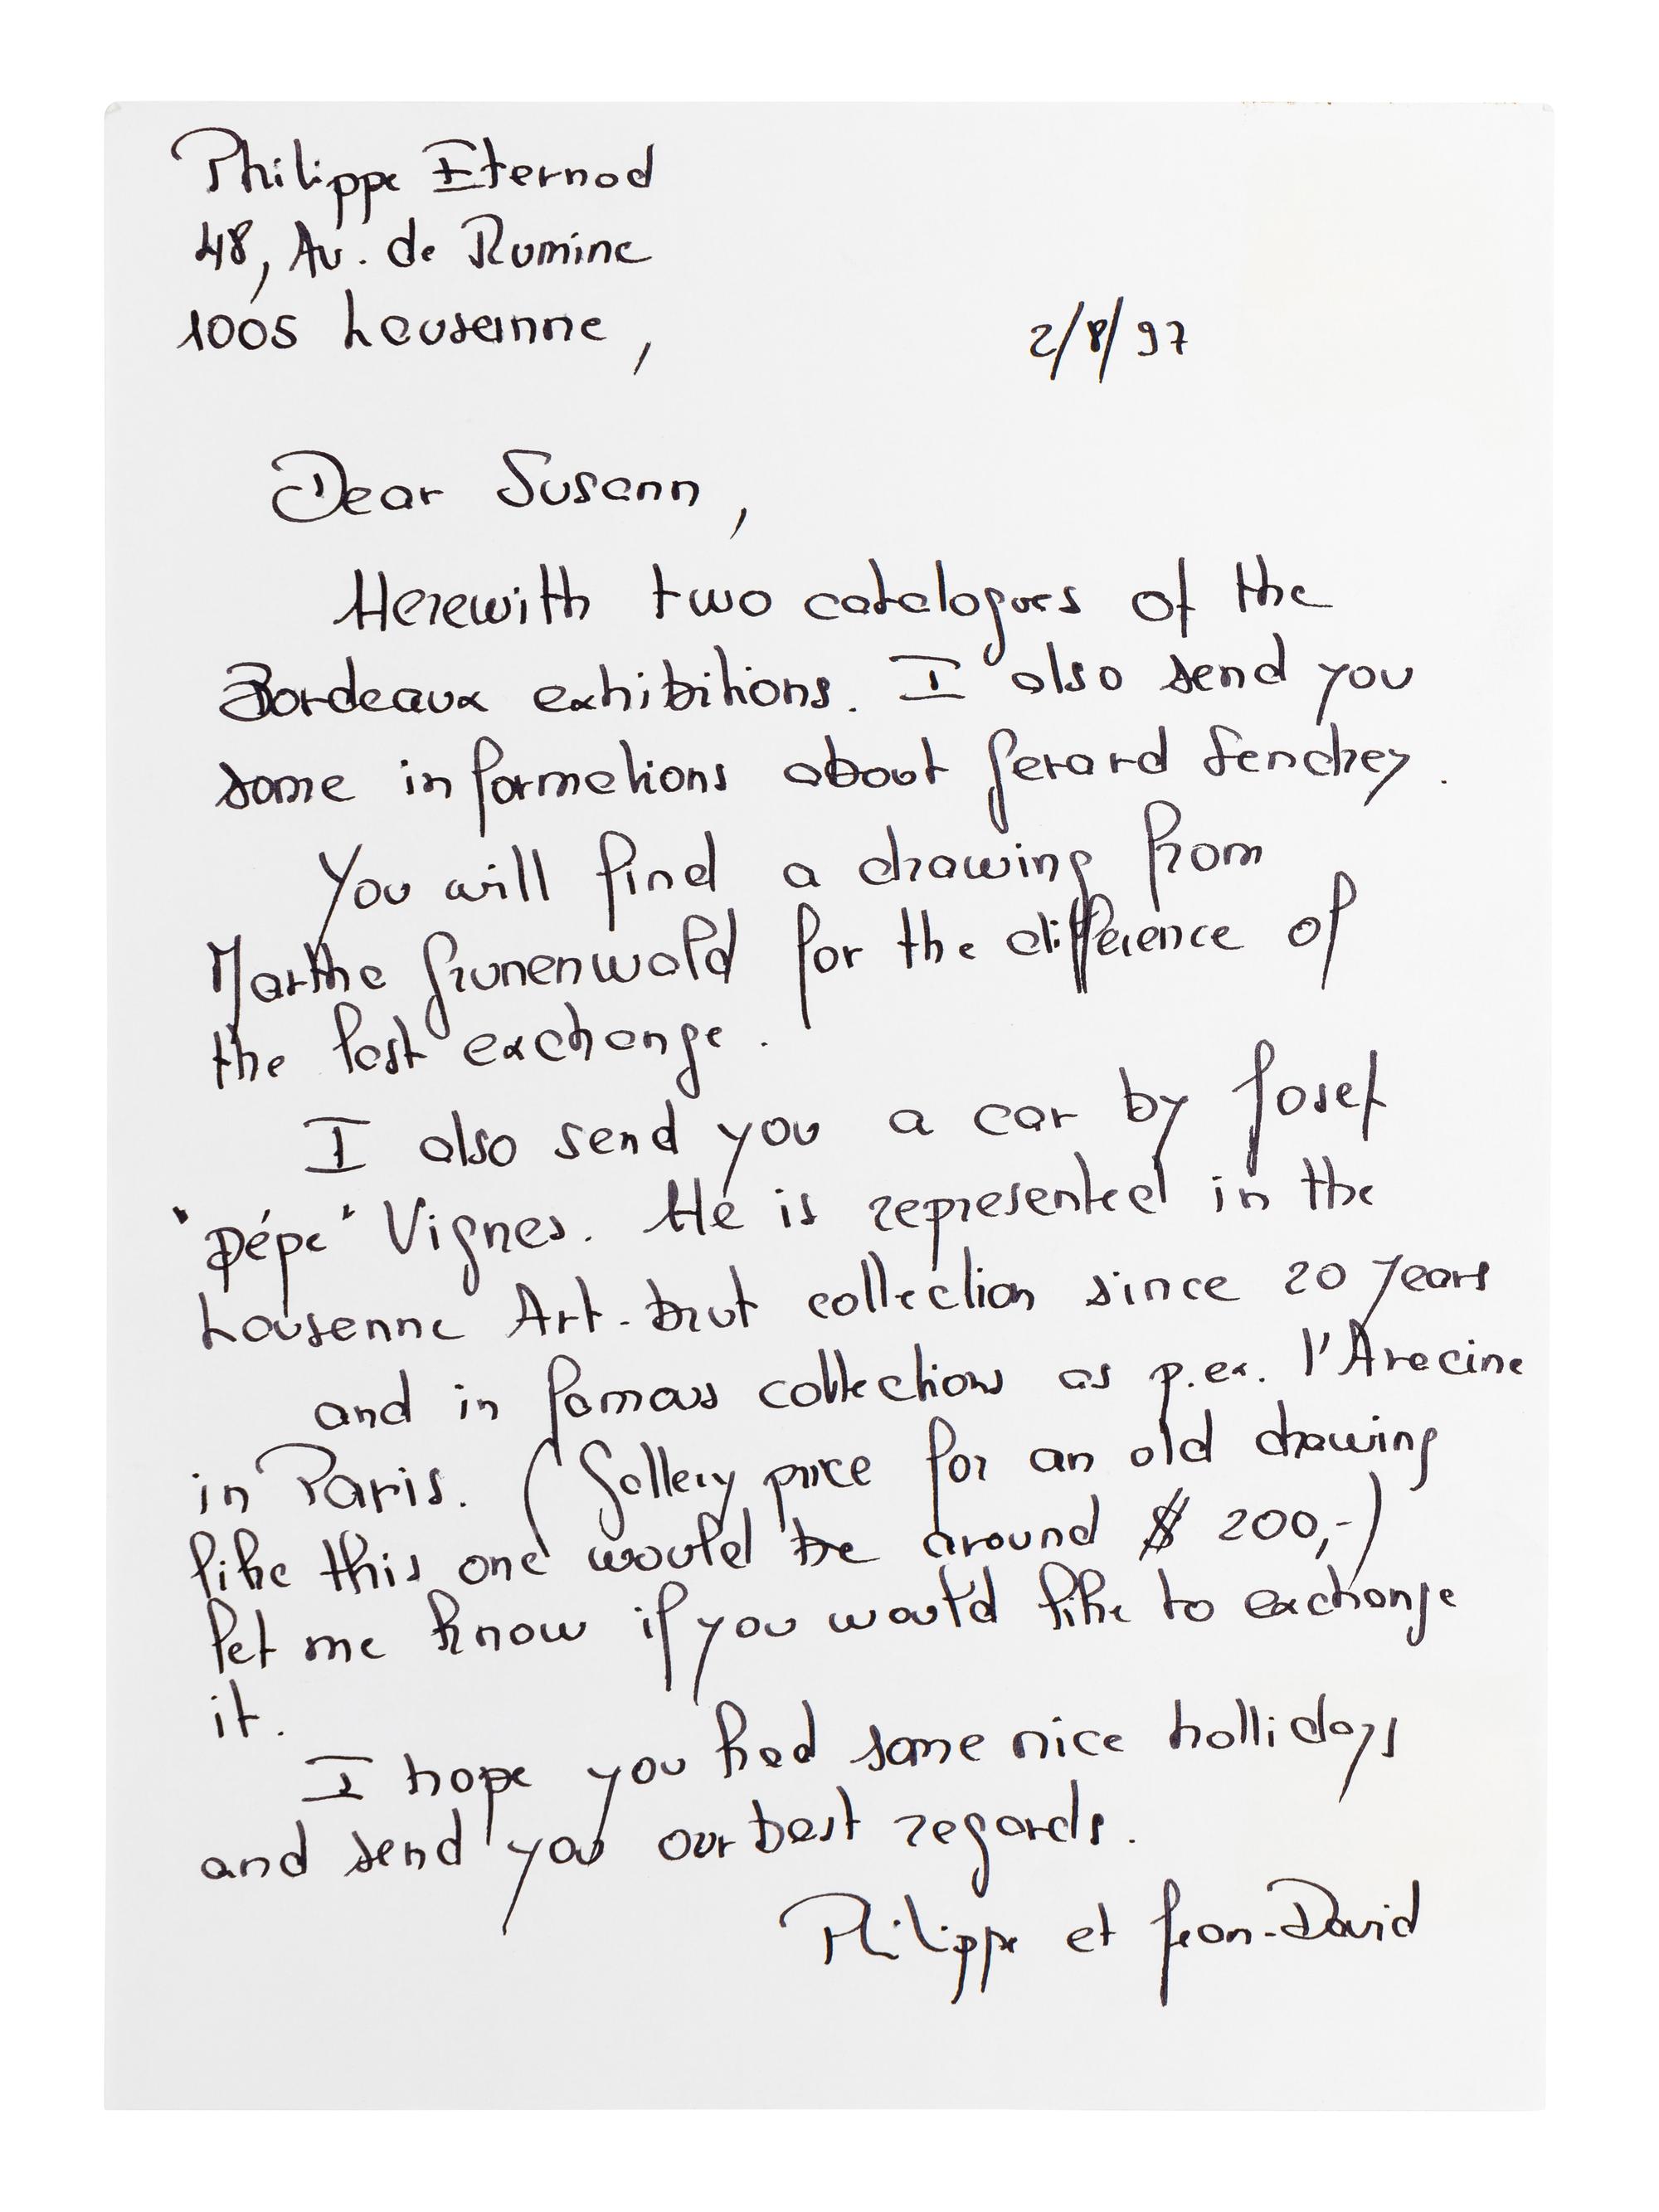 Philippe Eternod
48, Av. de Rumine
1005 Lausanne,
2/8/97
Dear Susann,
Herewith two catalogues of the
Bordeaux exhibitions. I also send you
some informations about Gerard Sendrey.
You will find a drawing from
Marthe Grunenwald for the difference of
the last exchange.
I also send you a car by Josef
"pépé" Vignes. He is represented in the
Lausanne Art-brut collection since 20 years
and in famous collections as p.ex. l'Aracine
in Paris. (Gallery price for an old drawing
like this one would be around $ 200,-)
Let me know if you would like to exchange
it.
I hope you had some nice hollidays
and send you our best regards.
Philippe et Jean-David